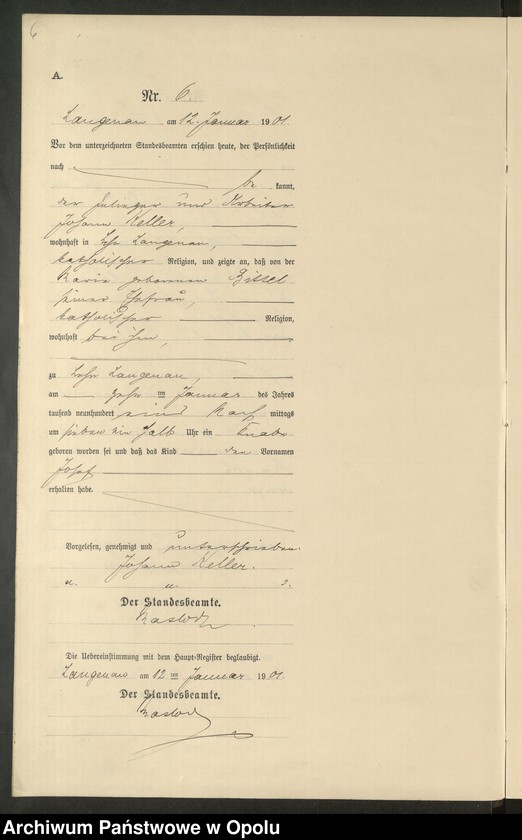 6
A.
Nr. 6.
Langenau am 12. Januar 1901.
Vor dem unterzeichneten Standesbeamten erschien heute, der Persönlichkeit
nach
be kannt,
der und Arbeiter
Johann Keller,
wohnhaft in Lehn Langenau,
katholischer Religion, und zeigte an, daß von der
Maria geborenen Bittel
seiner Ehefrau,
katholischer Religion,
wohnhaft bei ihm,
zu Lehn Langenau,
am zehn ten Januar des Jahres
tausend neunhundert eins Nach mittags
um sieben ein halb Uhr ein Knabe
geboren worden sei und daß das Kind den Vornamen
Josef
erhalten habe.
Vorgelesen, genehmigt und unterschrieben.
Johann Keller.
Der Standesbeamte.
Die Uebereinstimmung mit dem Haupt-Register beglaubigt.
Langenau am 12 ten Januar 1901.
Der Standesbeamte.
Archiwum Państwowe w Opolu